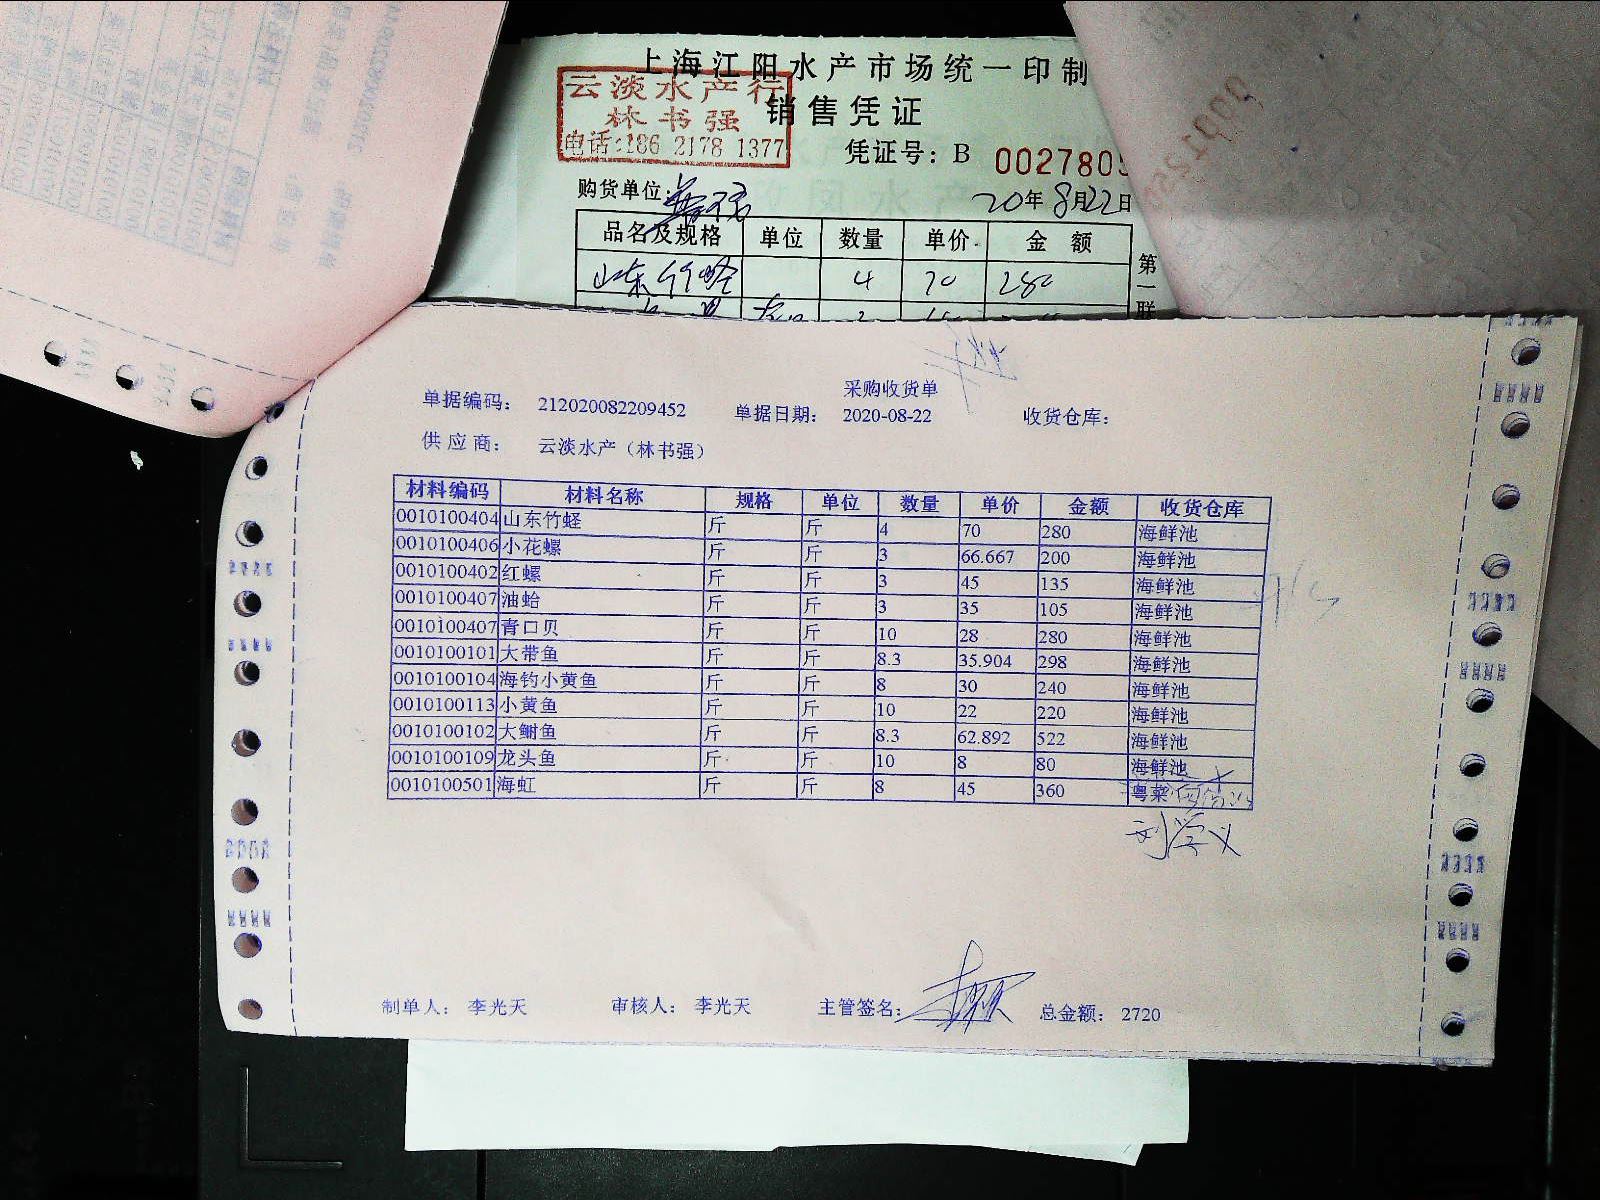 上海江阳水产市场统一印制
云淡水产行
林书强
电话:186 2178 1377
销售凭证
凭证号: B 002780
购货单位:
20年8月22日
品名及规格 单位 数量 单价 金额
山东竹蛏 4 70 280
第一联
采购收货单
单据编码: 212020082209452 单据日期: 2020-08-22 收货仓库:
供应商: 云淡水产（林书强）
材料编码 材料名称 规格 单位 数量 单价 金额 收货仓库
0010100404 山东竹蛏 斤 斤 4 70 280 海鲜池
0010100406 小花螺 斤 斤 3 66.667 200 海鲜池
0010100402 红螺 斤 斤 3 45 135 海鲜池
0010100407 油蛤 斤 斤 3 35 105 海鲜池
0010100407 青口贝 斤 斤 10 28 280 海鲜池
0010100101 大带鱼 斤 斤 8.3 35.904 298 海鲜池
0010100104 海钓小黄鱼 斤 斤 8 30 240 海鲜池
0010100113 小黄鱼 斤 斤 10 22 220 海鲜池
0010100102 大鲥鱼 斤 斤 8.3 62.892 522 海鲜池
0010100109 龙头鱼 斤 斤 10 8 80 海鲜池
0010100501 海虹 斤 斤 8 45 360 粤菜
刘学义
制单人: 李光天 审核人: 李光天 主管签名: 总金额: 2720